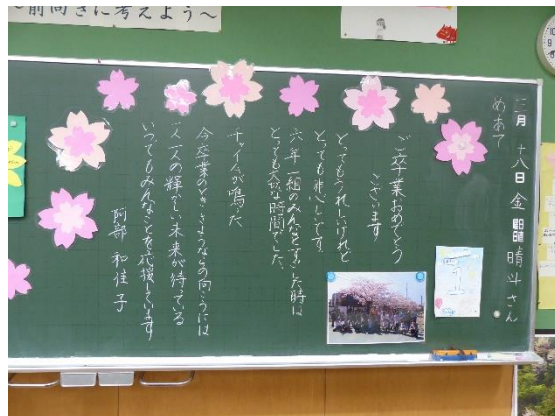 ～前向きに考えよう～
三月 十八日 金 晴斗さん
めあて
ご卒業おめでとう
ございます
とってもうれしいけれど
とっても悲しいです。
六年一組のみんなとすごした時は
とっても大切な時間でした。
チャイムが鳴った
今卒業のとき、さようならの向こうには
一人一人の輝かしい未来が待っている
いつでもみんなのことを応援しています
阿部 和佳子